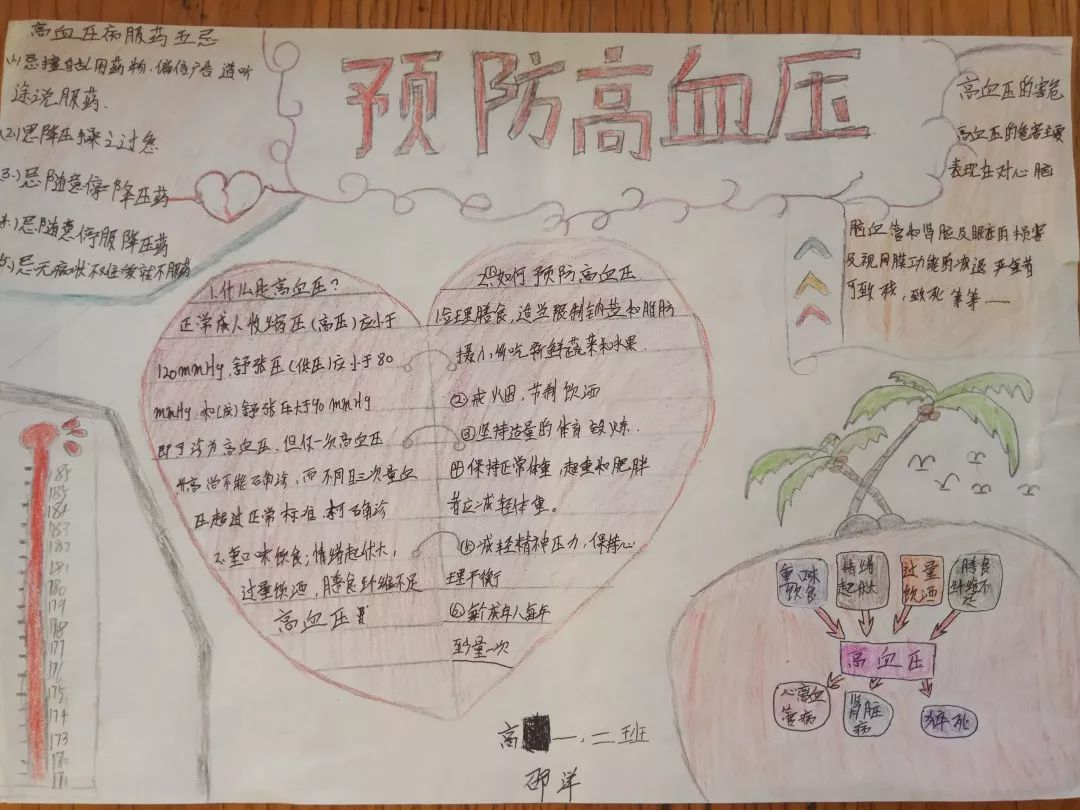 预防高血压
高血压病服药五忌
(1)忌擅自乱用药物、偏信广告道听
涂说服药.
(2)忌降压操之过急
(3)忌随意停降压药
忌随意停服降压药
忌无症状不服药
高血压的害危
高血压的危害主要
表现在对心脑
脑血管和肾脏及眼底的损害
及视网膜功能的减退严重者
可致残，致死 等等……
1.什么是高血压？
正常成人收缩压(高压)应小于
120mmHg.舒张压(低压)应小于80
mmHg 和(或)舒张压大于90mmHg
即可诊为高血压，但仅一次高血压
升高尚不能确诊，而不同日三次量血
压超过正常标准，才可确诊
2.重口味饮食，情绪起伏大，
过量饮酒，膳食纤维不足
高血压
2.如何预防高血压
①合理膳食，适当限制钠盐和脂肪
摄入，多吃新鲜蔬菜和水果.
②戒烟，节制饮酒
③坚持适量的体育锻炼.
④保持正常体重，超重和肥胖
者应减轻体重。
⑤减轻精神压力，保持心
理平衡
⑥ 每年
至少量一次
185
184
183
182
181
180
179
178
177
176
175
174
173
重口味
饮食
情绪
起伏大
过量
饮酒
膳食
纤维不
足
高血压
心高血
管病
肾脏
病
猝死
高 一、二班
邵洋